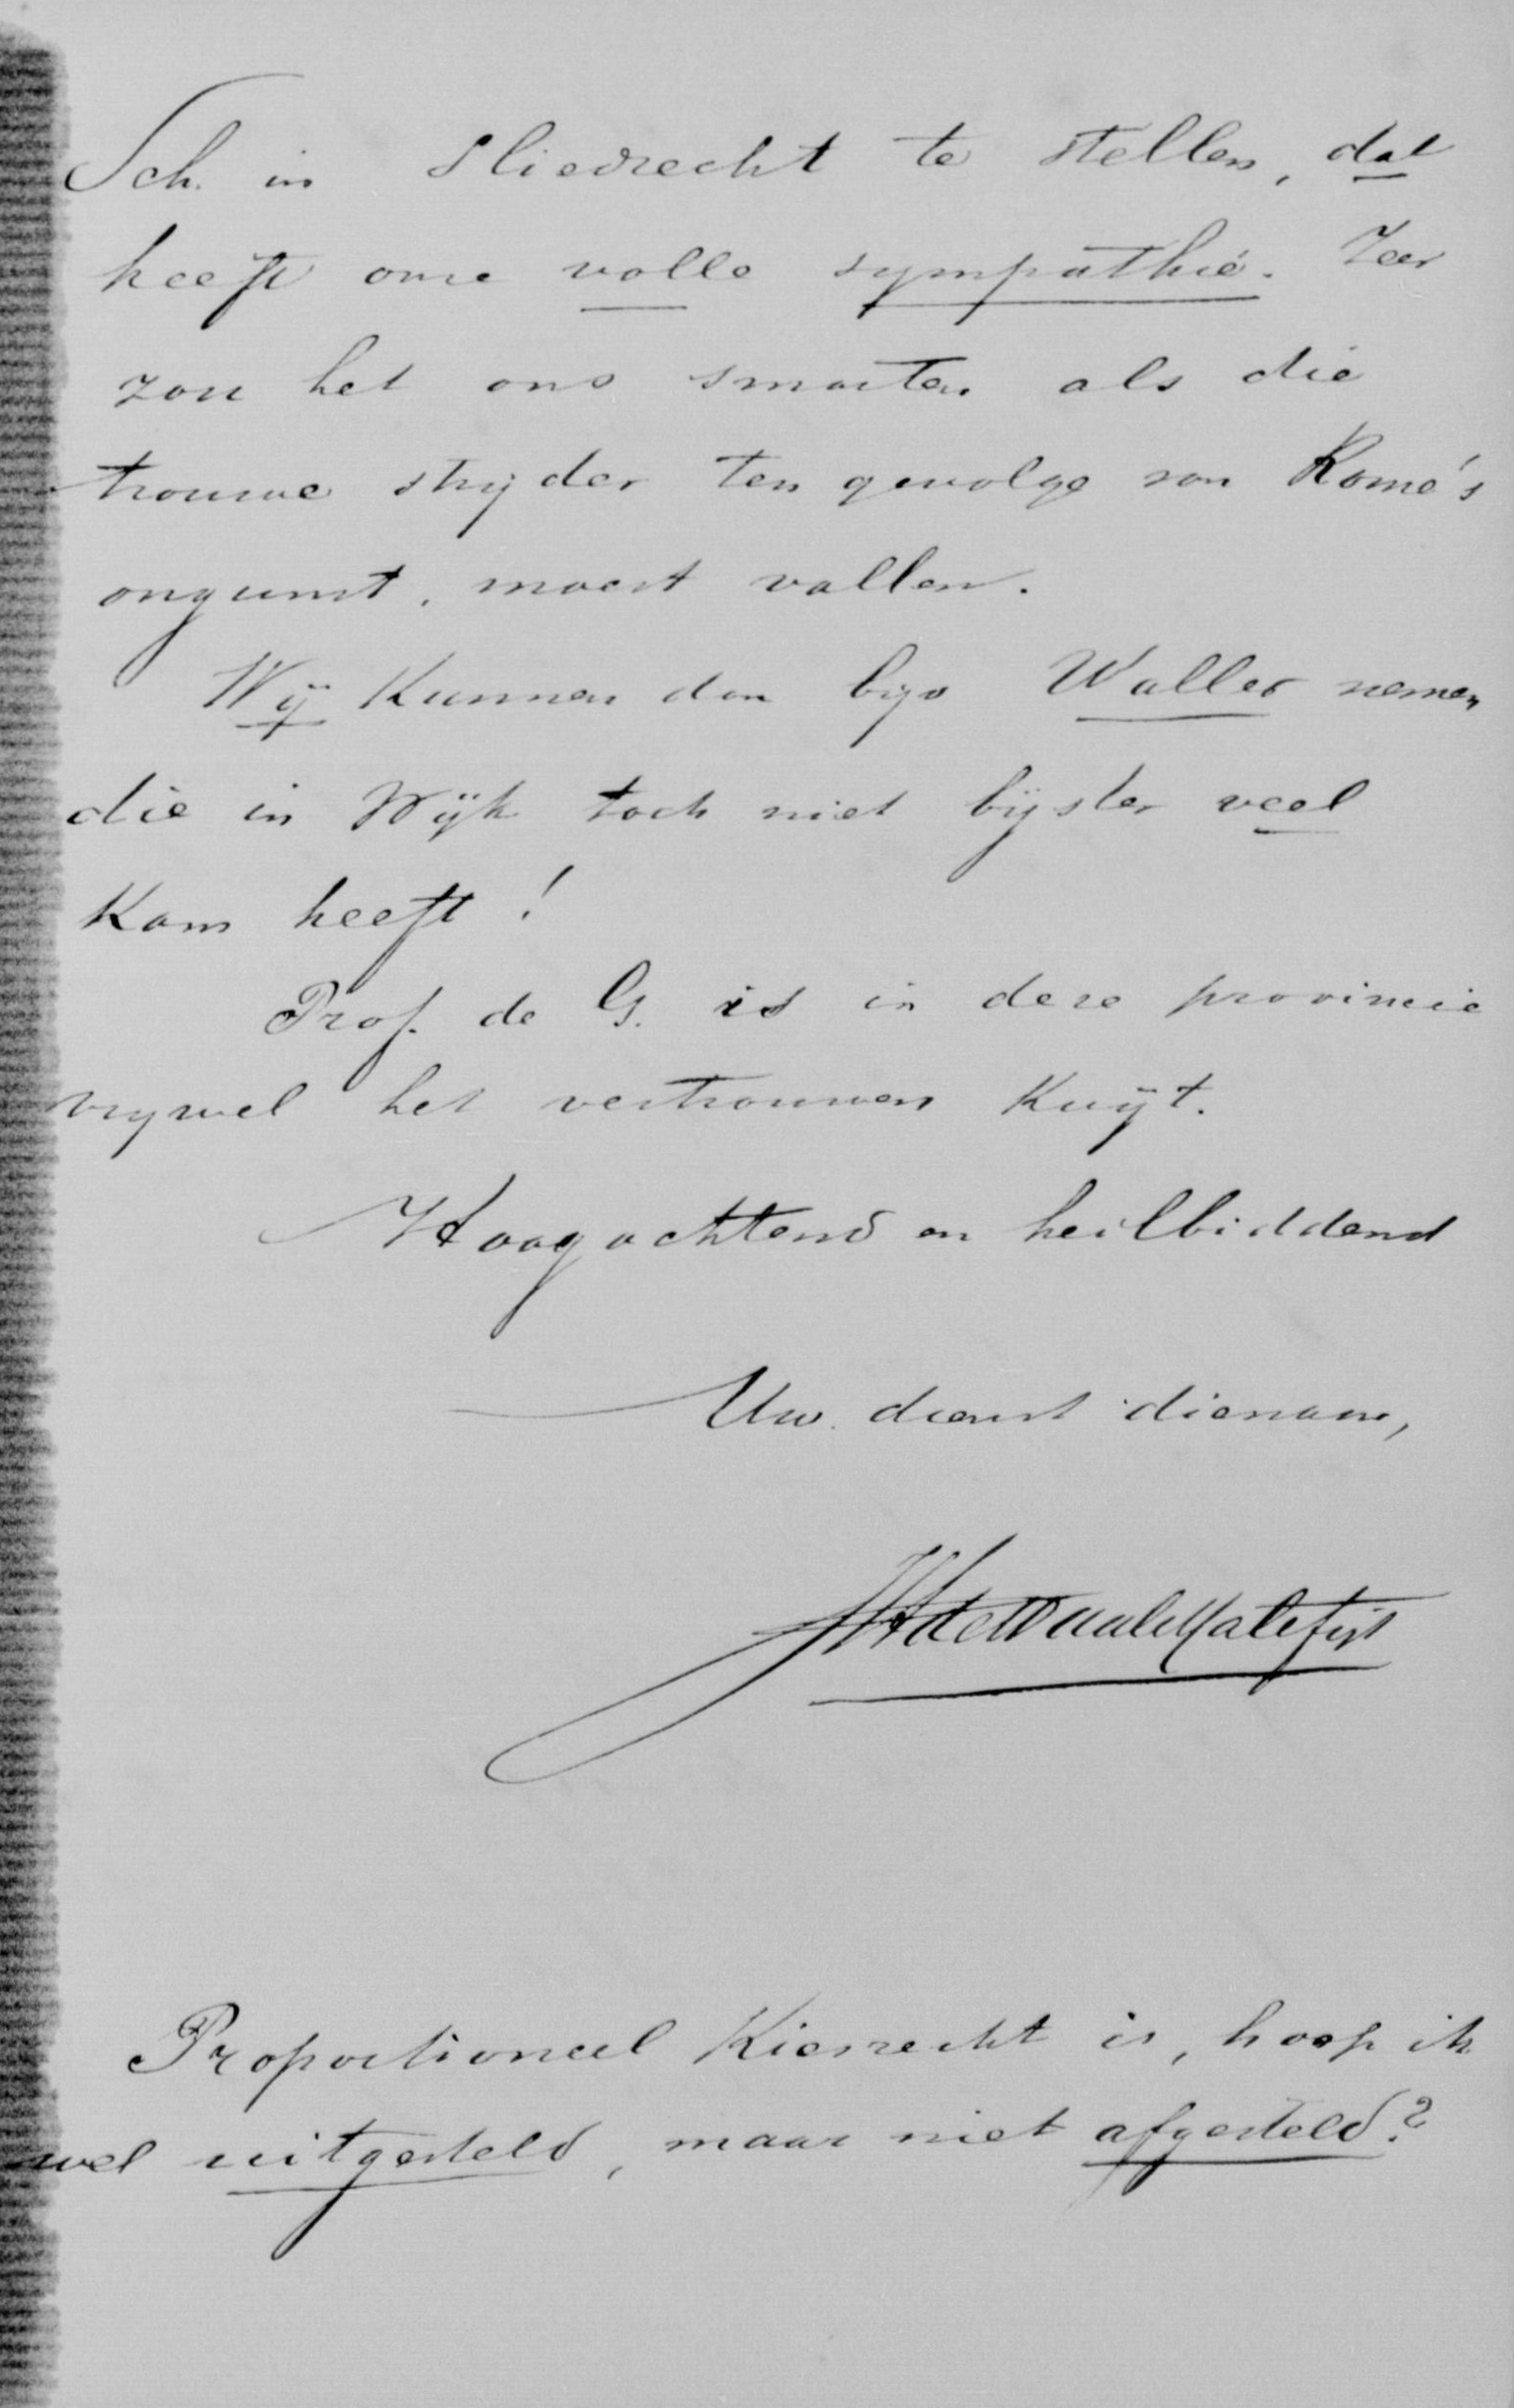 Sch. in Sliedrecht te stellen, dat
heeft onze volle sympathie. Zeer
zou het ons smarten als die
trouwe strijder ten gevolge van Rome's
ongunst, moest vallen.
Wij kunnen dan bijv Waller nemen
die in Wijk toch niet bijster veel
Kans heeft!
Prof. de G. is in deze provincie
vrijwel het vertrouwen kwijt.
Hoogachtend en heilbiddend
Uw. dienst dienaar,
JHdeWaalMalefijt
Proportioneel Kiesrecht is, hoop ik
wel uitgesteld, maar niet afgesteld?